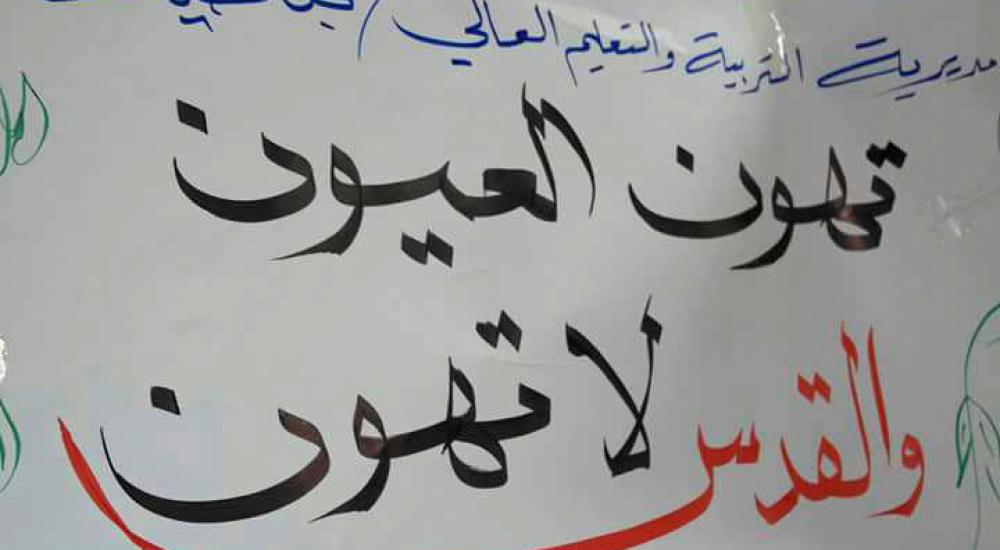 مديرية التربية والتعليم العالي /
تهون العيون
والقدس لا تهون